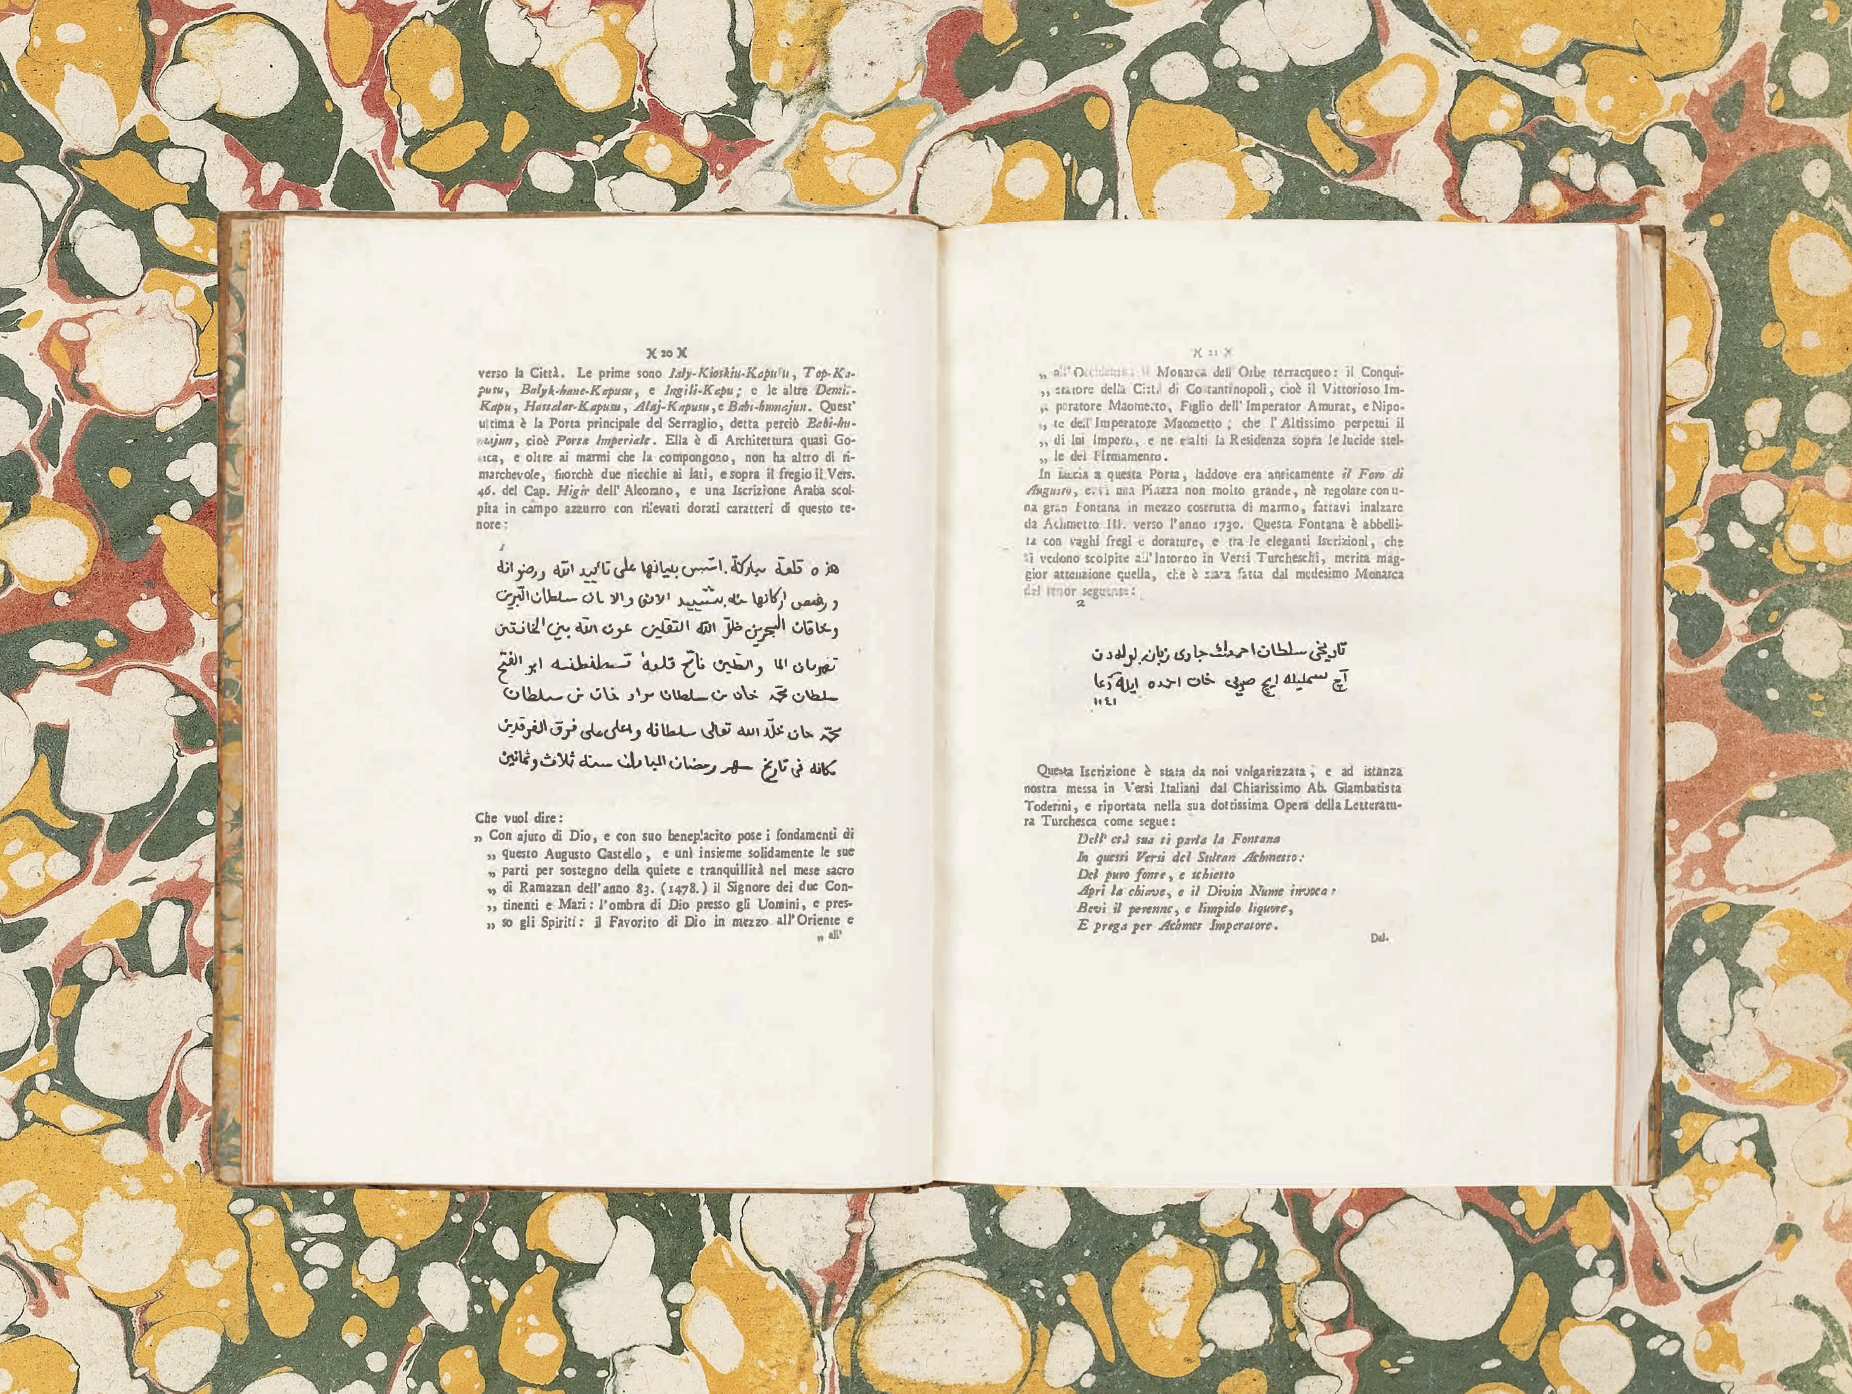 )( 20 )(
verso la Città. Le prime sono Ialy-Kioskiu-Kapusu, Top-Ka-
pusu, Balyk-hane-Kapusu, e Ingili-Kapu; e le altre Demir-
Kapu, Hastalar-Kapusu, Alaj-Kapusu, e Babi-humajun. Quest'
ultima è la Porta principale del Serraglio, detta perciò Babi-hu-
majun, cioè Porta Imperiale. Ella è di Architettura quasi Go-
tica, e oltre ai marmi che la compongono, non ha altro di ri-
marchevole, fuorchè due nicchie ai lati, e sopra il fregio il Vers.
46. del Cap. Higir dell' Alcorano, e una Iscrizione Araba scol-
pita in campo azzurro con rilevati dorati caratteri di questo te-
nore:
1
هذه قلعة مباركة. اسّس بنيانها على تاٴييد الله ورضوانه
اركانها بتشييد والامان سلطان البّرين
وخاقان البحرين ظلّ الله الثقلين عون الله بين الخافقين
الما والطين فاتح قلعهٔ ابو الفتح
سلطان محّمد خان بن سلطان مراد خان بن سلطان
محّمد خان خلّد الله تعالى سلطانه واعلى على فرق الفرقدين
مكانه فى تاريخ شهر رمضان المبارك سنه ثلاث وثمانين
Che vuol dire:
„ Con ajuto di Dio, e con suo beneplacito pose i fondamenti di
„ questo Augusto Castello, e unì insieme solidamente le sue
„ parti per sostegno della quiete e tranquillità nel mese sacro
„ di Ramazan dell' anno 83. (1478.) il Signore dei due Con-
„ tinenti e Mari: l'ombra di Dio presso gli Uomini, e pres-
„ so gli Spiriti: il Favorito di Dio in mezzo all' Oriente e
„ all'
)( 21 )(
„ all' Occidente: il Monarca dell' Orbe terracqueo: il Conqui-
„ statore della Città di Costantinopoli, cioè il Vittorioso Im-
„ peratore Maometto, Figlio dell' Imperator Amurat, e Nipo-
„ te dell' Imperatore Maometto; che l' Altissimo perpetui il
„ di lui Impero, e ne esalti la Residenza sopra le lucide stel-
„ le del Firmamento.
In faccia a questa Porta, laddove era anticamente il Foro di
Augusto, evvi una Piazza non molto grande, nè regolare con u-
na gran Fontana in mezzo costrutta di marmo, fattavi inalzare
da Achmetto III. verso l'anno 1730. Questa Fontana è abbelli-
ta con vaghi fregi e dorature, e tra le eleganti Iscrizioni, che
si vedono scolpite all' intorno in Versi Turcheschi, merita mag-
gior attenzione quella, che è stata fatta dal medesimo Monarca
del tenor seguente:
2
تاريخى سلطان احمدك جارى زبان لوله دن
آچ بسمليله ايچ صويى خان احمده ايله دعا
١١٤١
Questa Iscrizione è stata da noi volgarizzata, e ad istanza
nostra messa in Versi Italiani dal Chiarissimo Ab. Giambatista
Toderini, e riportata nella sua dottissima Opera della Letteratu-
ra Turchesca come segue:
Dell' età sua ti parla la Fontana
In questi Versi del Sultan Achmetto:
Del puro fonte, e schietto
Apri la chiave, e il Divin Nume invoca:
Bevi il perenne, e limpido liquore,
E prega per Achmet Imperatore.
Dal-